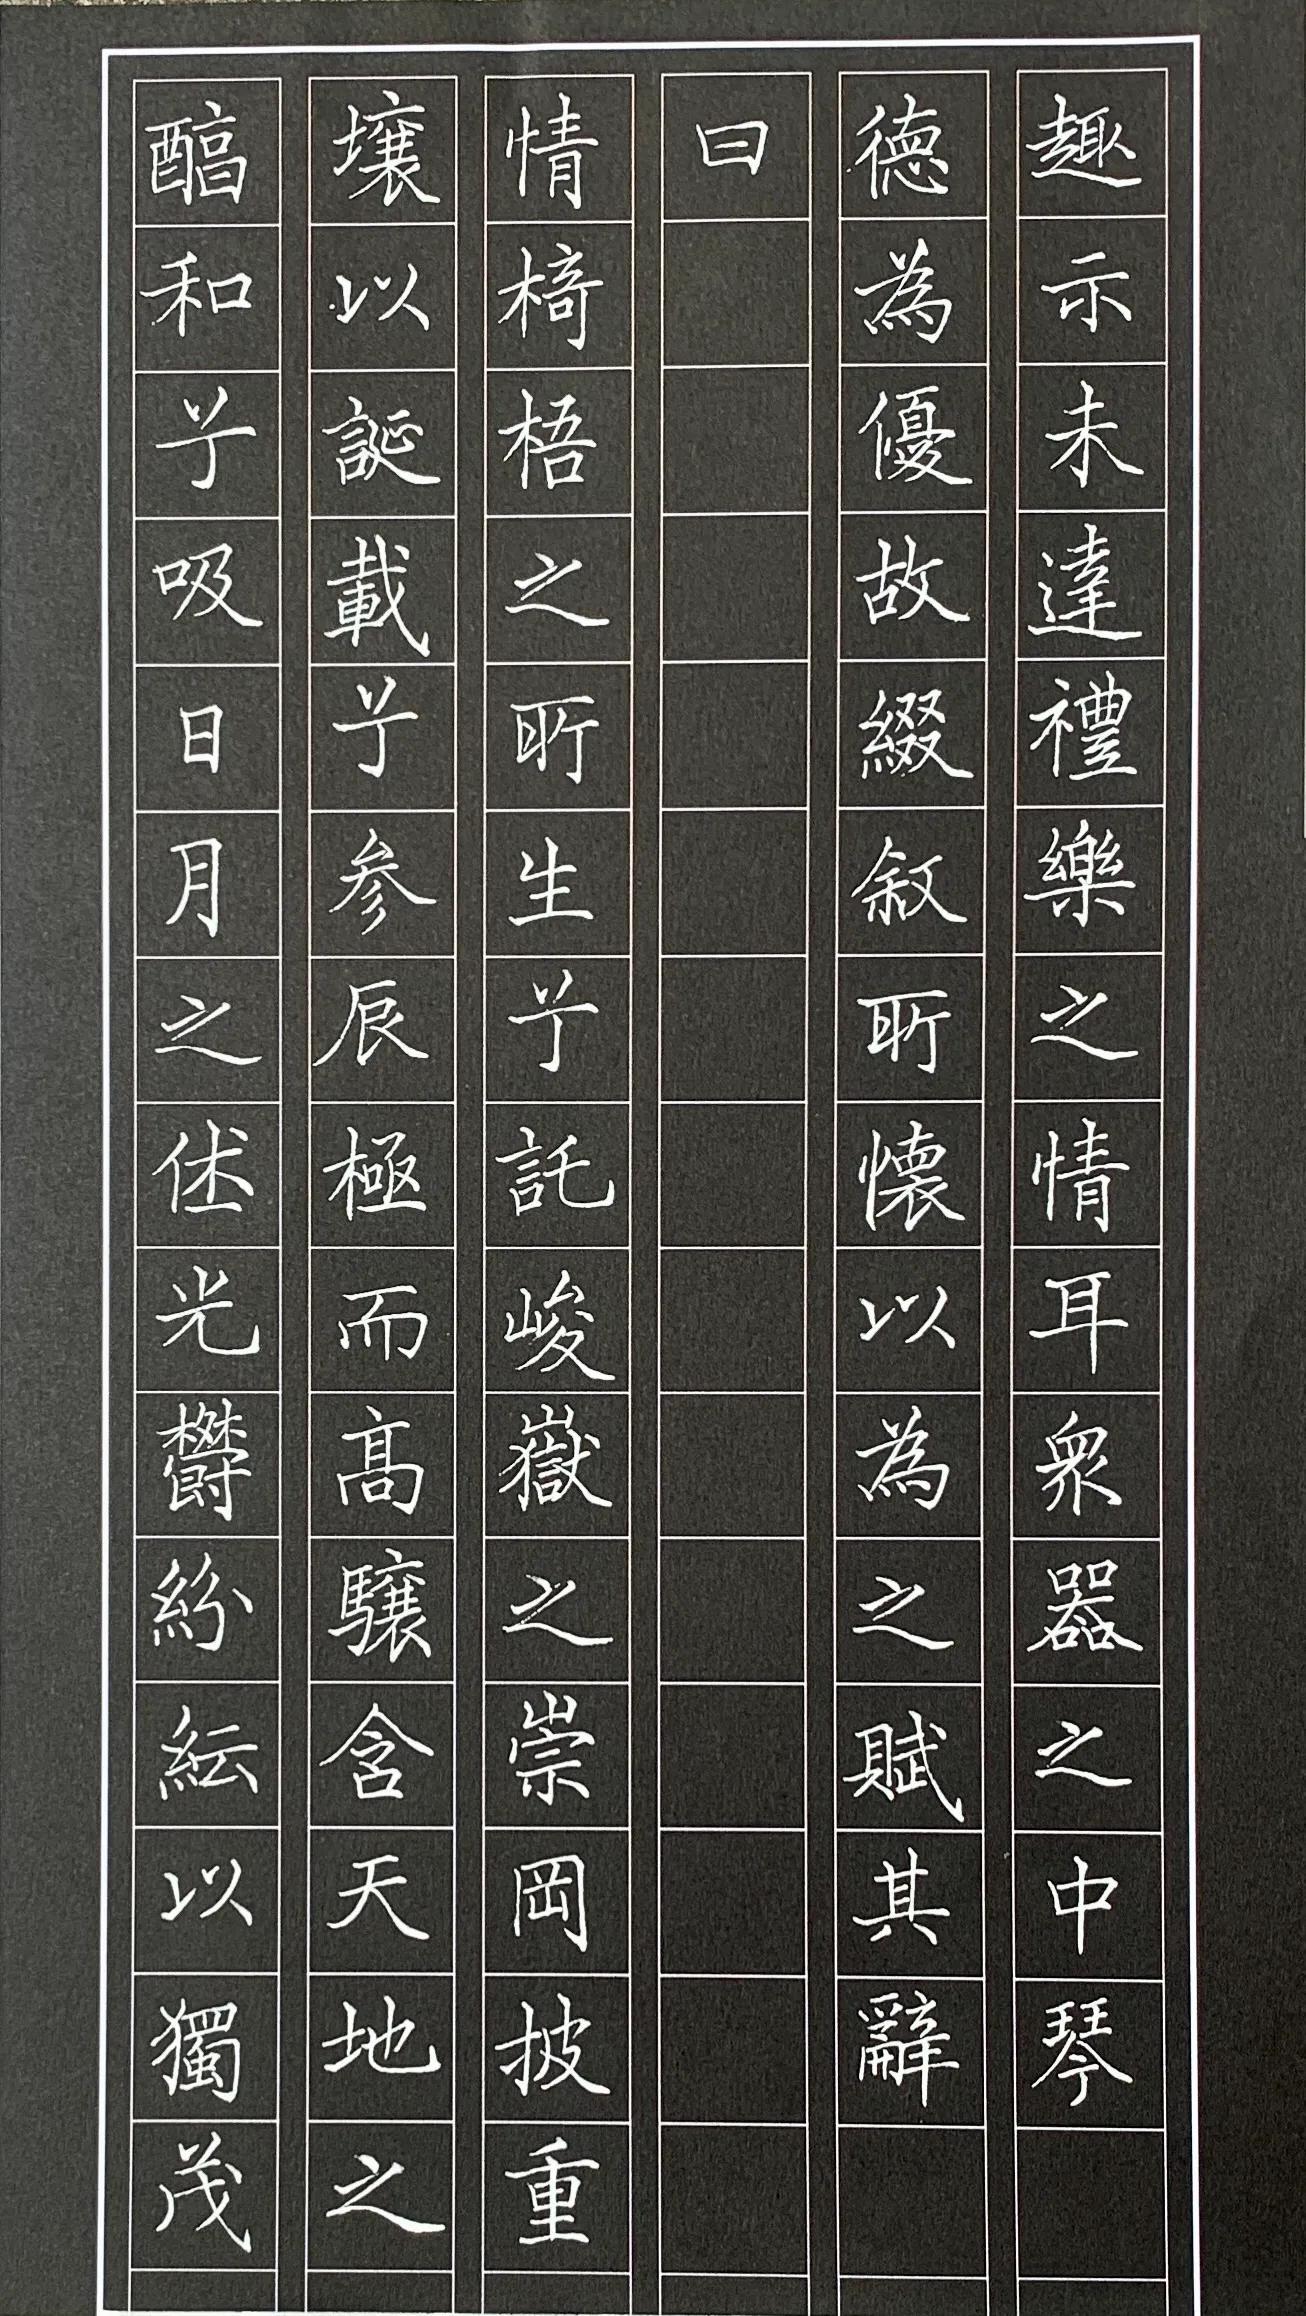 趣示未達禮樂之情耳衆器之中琴
徳為優故綴叙所懐以為之賦其辭
曰
情椅梧之所生兮託峻嶽之崇岡披重
壌以誕載兮参辰極而髙驤含天地之
醇和兮吸日月之休光欝紛紜以獨茂